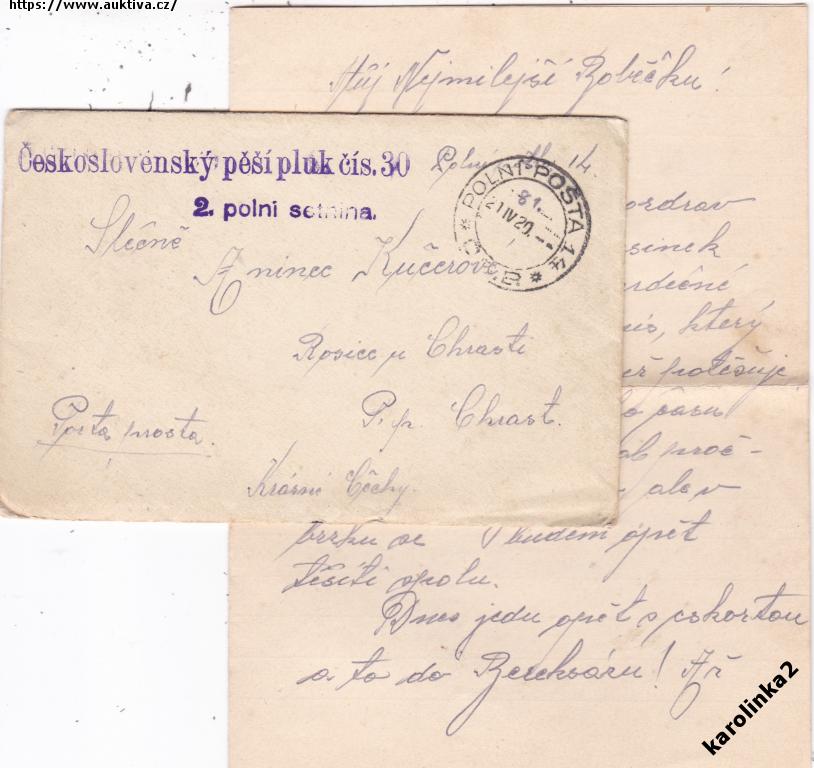 https://www.auktiva.cz/
Můj Nejmilejší Boběčku!
Československý pěší pluk čís. 30
2. polní setnina.
Polní 14.
POLNÍ POŠTA 14
81.
21 IV 20.
Slečně
Aninec Kučerové
Rosice u Chrasti
P. p. Chrast.
Porta prosta.
Krásné Čechy.
ozdrav
sinek
rdečné
is, který
potěšuje
času
proč-
ale v
brzku se budem opět
těšiti spolu.
Dnes jedu opět s eskortou
a to do Berehsásu! Až
karolinka2